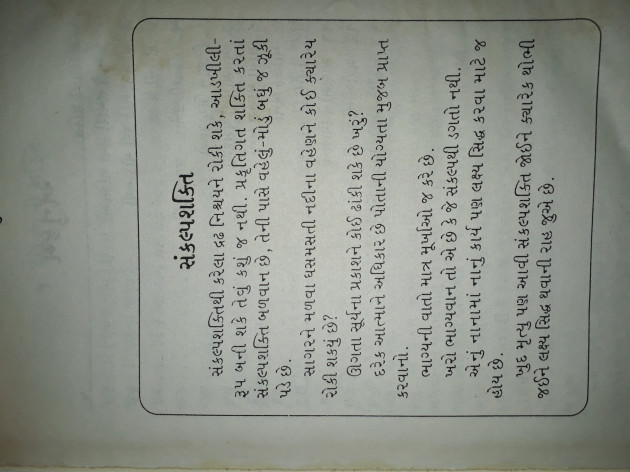 સંકલ્પશક્તિ
સંકલ્પશક્તિથી કરેલા દ્રઢ નિશ્ચયને રોકી શકે, આડખીલી-
રૂપ બની શકે તેવું કશું જ નથી. પ્રકૃતિગત શક્તિ કરતાં
સંકલ્પશક્તિ બળવાન છે, તેની પાસે વહેલું-મોડું બધું જ ઝૂકી
પડે છે.
સાગરને મળવા ધસમસતી નદીના વહેણને કોઈ ક્યારેય
રોકી શકયું છે?
ઊગતા સૂર્યના પ્રકાશને કોઈ ઢાંકી શકે છે ખરું?
દરેક આત્માને અધિકાર છે પોતાની યોગ્યતા મુજબ પ્રાપ્ત
કરવાનો.
ભાગ્યની વાતો માત્ર મૂર્ખાઓ જ કરે છે.
ખરો ભાગ્યવાન તો એ છે કે જે સંકલ્પથી ડગતો નથી.
એનું નાનામાં નાનું કાર્ય પણ લક્ષ્ય સિદ્ધ કરવા માટે જ
હોય છે.
ખુદ મૃત્યુ પણ આવી સંકલ્પશક્તિ જોઈને ક્યારેક થોભી
જઈને લક્ષ્ય સિદ્ધ થવાની રાહ જુએ છે.